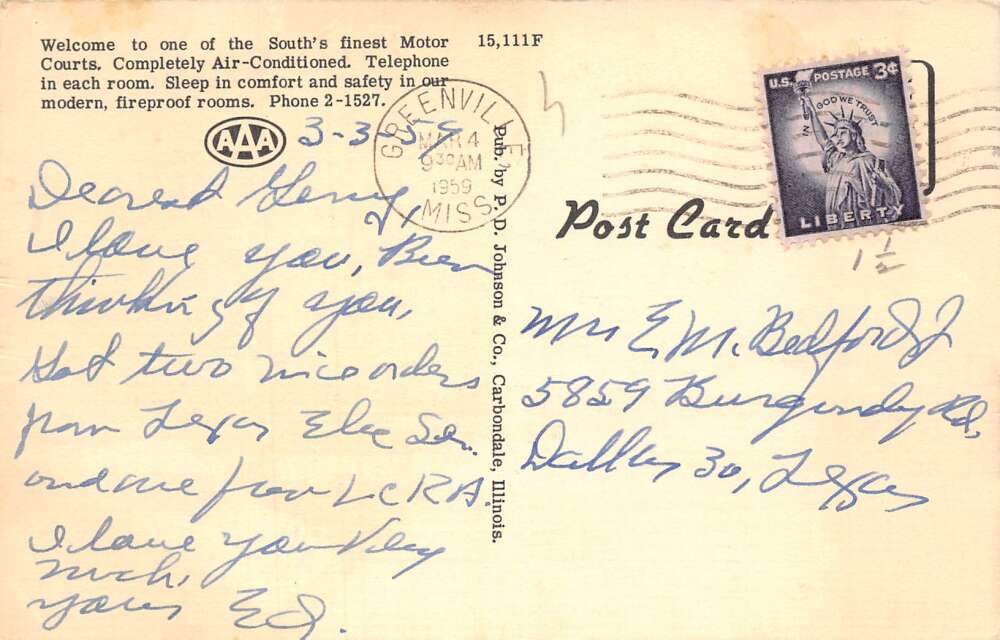 Welcome to one of the South's finest Motor
Courts. Completely Air-Conditioned. Telephone
in each room. Sleep in comfort and safety in our
modern, fireproof rooms. Phone 2-1527.
15,111F
AAA
3-3-59
Dearest
I love you, Been
thinking of you,
Got two nice orders
from Texas Elec Ser.
and one from LCRA.
I love you Very
much,
yours Ed.
GREENVILLE
MAR 4
9 30 AM
1959
MISS.
Pub. by P. D. Johnson & Co., Carbondale, Illinois.
U.S. POSTAGE 3¢
IN GOD WE TRUST
LIBERTY
Post Card
1 1/2
Mrs E. M. Bedford Jr
5859 Burgundy Rd,
Dallas 30, Texas